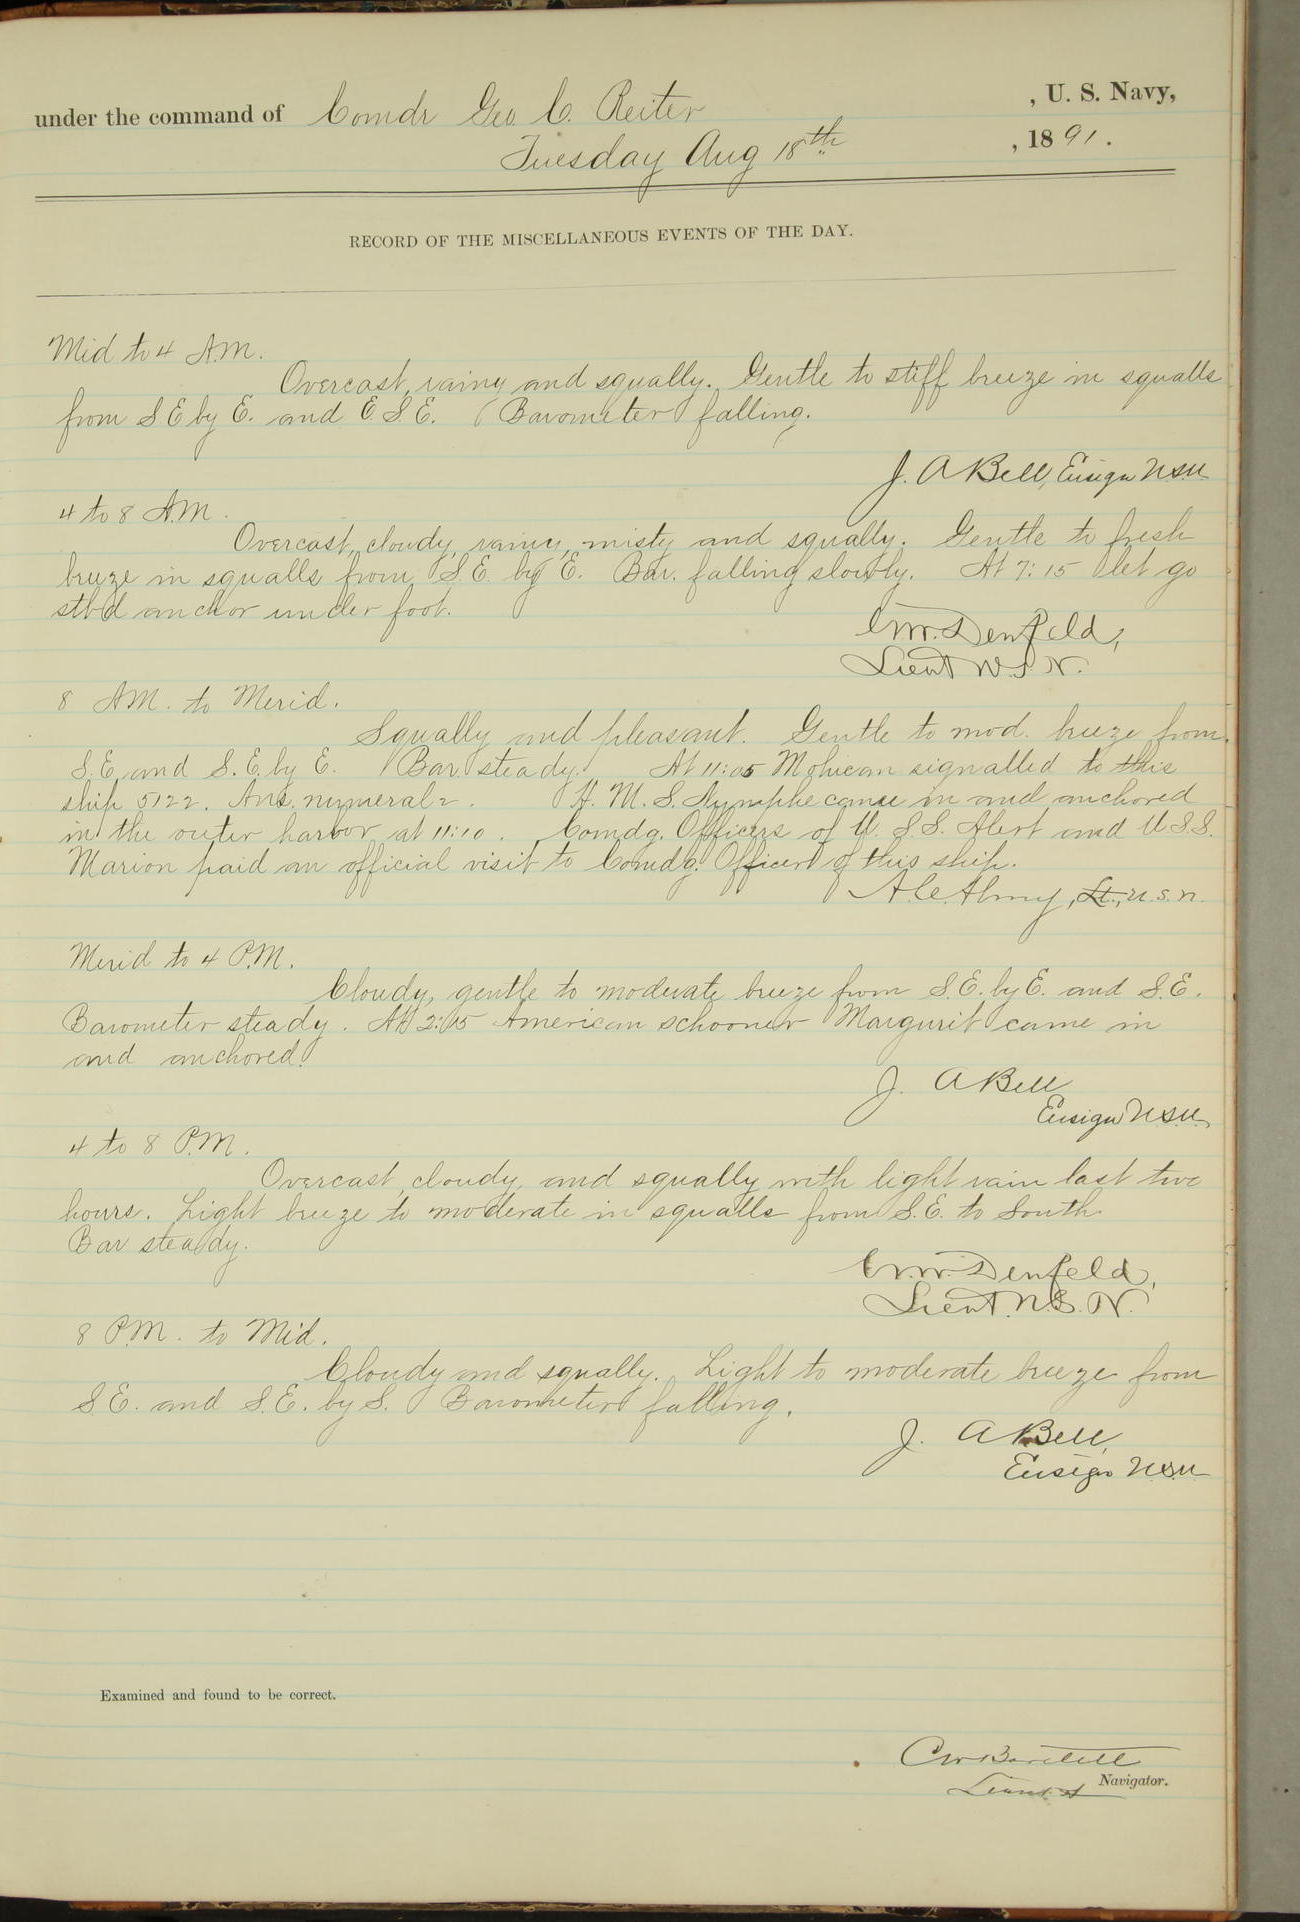 under the command of Comdr Geo. C. Reiter , U. S. Navy,
Tuesday Aug 18th , 1891.
RECORD OF THE MISCELLANEOUS EVENTS OF THE DAY.
Mid to 4 A.M.
Overcast, rainy and squally. Gentle to stiff breeze in squalls
from S E by E. and E S.E. Barometer falling.
J. A Bell, Ensign USN
4 to 8 A.M.
Overcast, cloudy, rainy, misty and squally. Gentle to fresh
breeze in squalls from S.E. by E. Bar. falling slowly. At 7:15 let go
stb'd anchor under foot.
Denfeld,
Lieut U.S.N.
8 AM. to Merid.
Squally and pleasant. Gentle to mod. breeze from
S.E. and S.E. by E. Bar. steady. At 11:05 Mohican signalled to this
ship 5122. Ans. numeral 2. H. M. S. Nymphe came in and anchored
in the outer harbor at 11:10. Comdg. Officers of U. S. S. Alert and U.S.S.
Marion paid an official visit to Comdg. Officer of this ship.
A.C. Almy, Lt., U.S.N.
Merid to 4 P.M.
Cloudy, gentle to moderate breeze from S.E. by E. and S.E.
Barometer steady. At 2:15 American schooner Margurit came in
and anchored.
J. A Bell
Ensign USN
4 to 8 P.M.
Overcast, cloudy, and squally with light rain last two
hours. Light breeze to moderate in squalls from S.E. to South.
Bar steady.
Denfeld,
Lieut. U.S.N.
8 P.M. to Mid.
Cloudy and squally. Light to moderate breeze from
S.E. and S.E. by S. Barometer falling.
J. A Bell,
Ensign USN
Examined and found to be correct.
C W Bartlett
Lieut. Navigator.